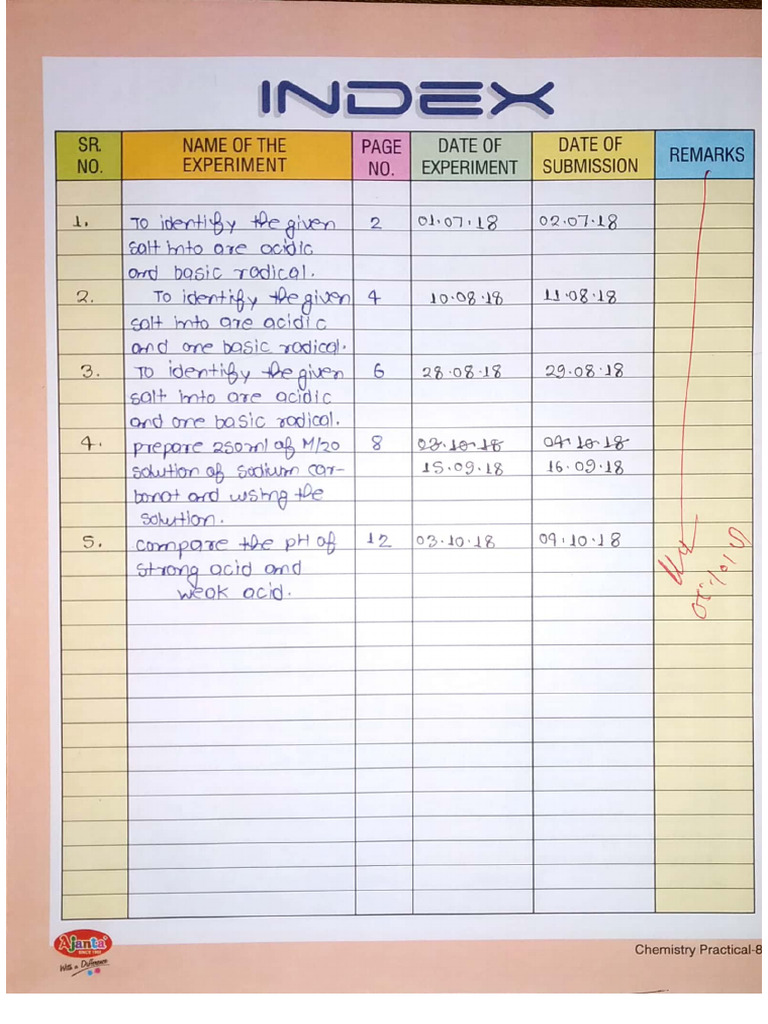 INDEX
SR. NO. NAME OF THE EXPERIMENT PAGE NO. DATE OF EXPERIMENT DATE OF SUBMISSION REMARKS
1. To identify the given 2 01.07.18 02.07.18
salt into are acidic
and basic radical.
2. To identify the given 4 10.08.18 11.08.18
salt into are acidic
and one basic radical.
3. To identify the given 6 28.08.18 29.08.18
salt into are acidic
and one basic radical.
4. prepare 250ml of M/20 8 03.10.18 04.10.18
solution of sodium car- 15.09.18 16.09.18
bonat and using the
solution.
5. compare the pH of 12 03.10.18 04.10.18
strong acid and
weak acid.
Ajanta
SINCE 1962
With a Difference
Chemistry Practical-8